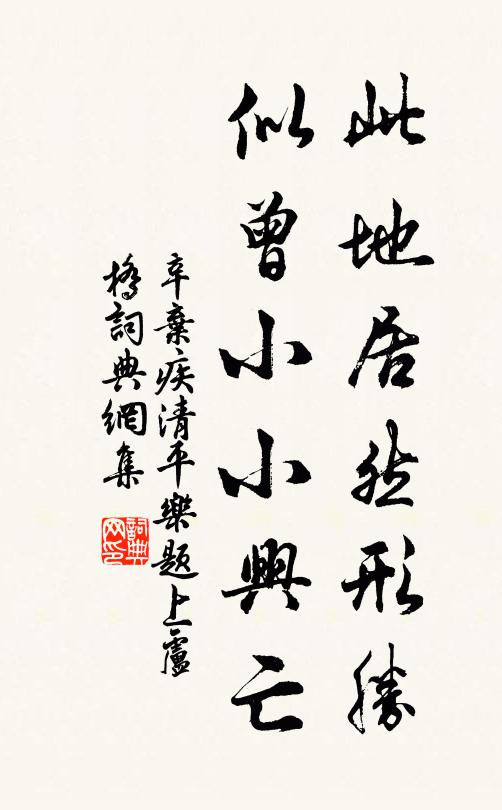 此地居然形勝
似曾小小興亡
辛棄疾清平樂題上盧
橋詞典網集
詞典
网印